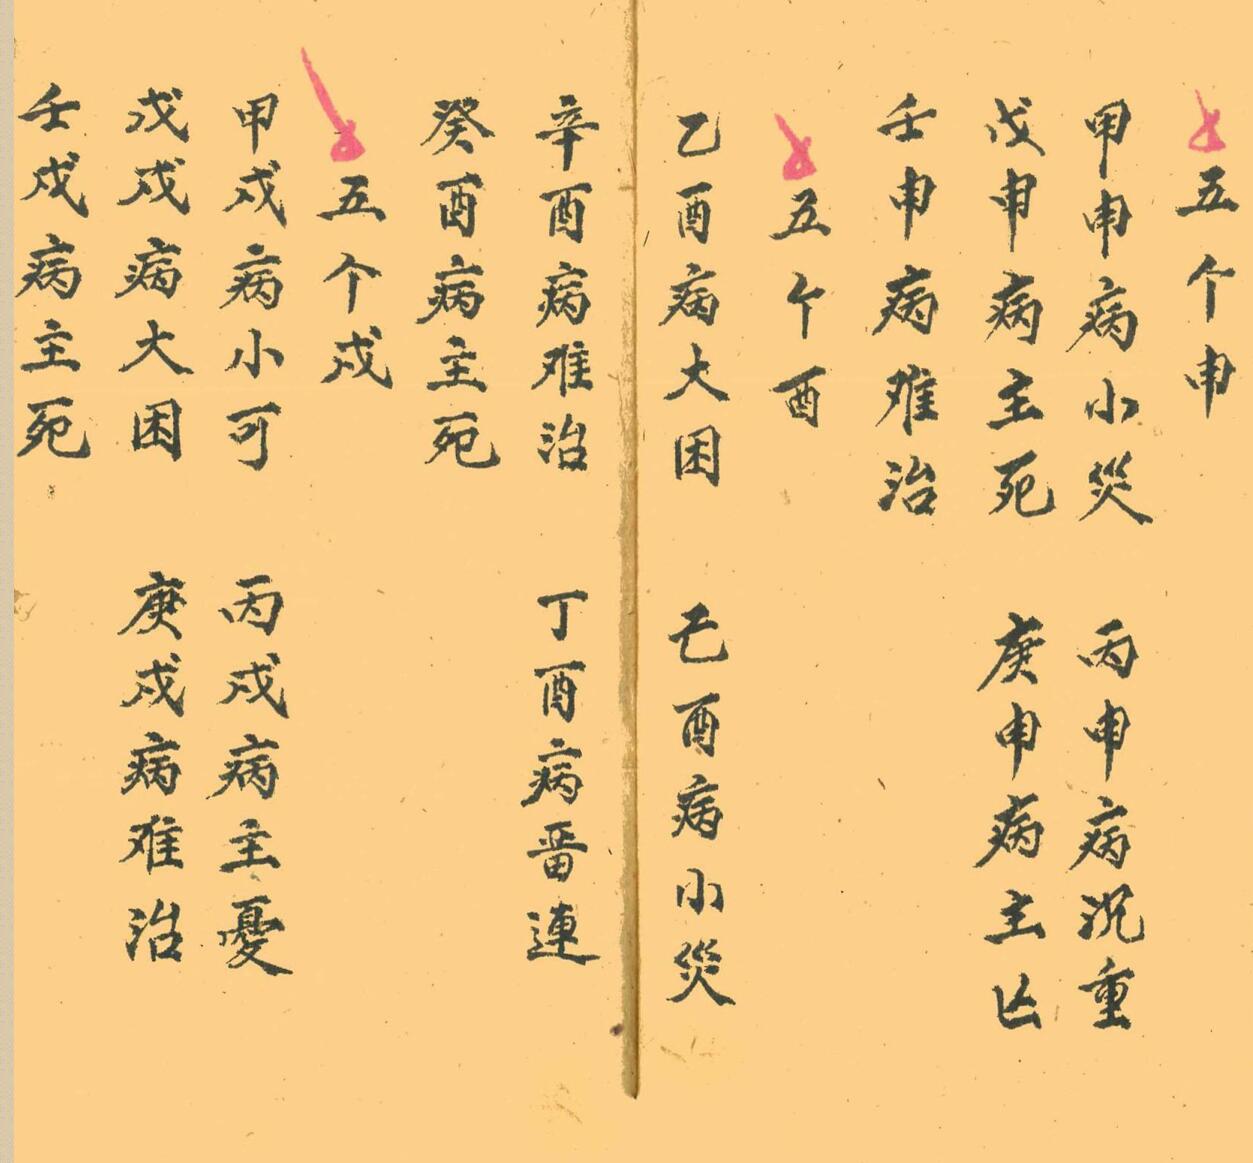 五个申
甲申病小災　丙申病沉重
戊申病主死　庚申病主凶
壬申病难治
五个酉
乙酉病大困　己酉病小災
辛酉病难治　丁酉病畱連
癸酉病主死
五个戌
甲戌病小可　丙戌病主憂
戊戌病大困　庚戌病难治
壬戌病主死